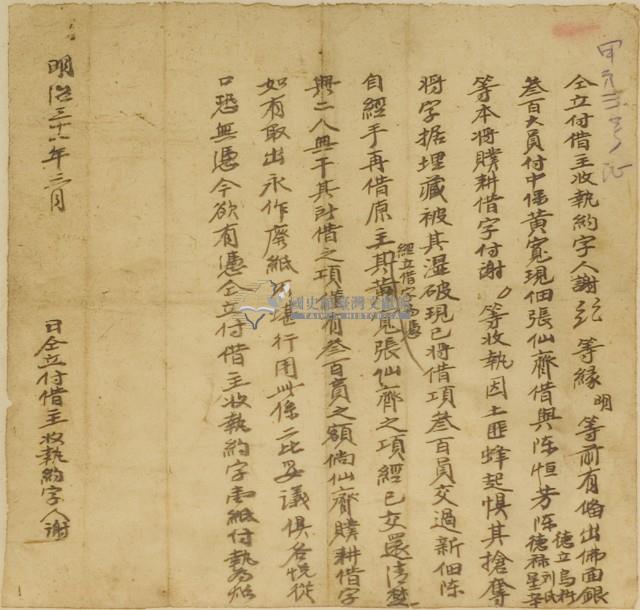 甲第 号證
仝立付借主收執約字人謝 等緣明等前有備出佛面銀
叁百大員付中保黃寬現佃張仙齊借與陈恒芳陈德祿
德立烏
等本將贌耕借字付謝 等收執因土匪蜂起惧其搶奪
將字据埋藏被其湿破現已將借項叁百員交過新佃陈
經立借字為憑
自經手再借原主其黃寬張仙齊之項經已交還清楚
與二人無干其討借之項 有叁百員之額倘仙齊贌耕借字
如有取出永作廢紙不堪行用此係二比妥議俱各悅從
口恐無憑今欲有憑仝立付借主收執約字壹紙付執為炤
明治三十 年三月
日仝立付借主收執約字人謝
國史館臺灣文獻館
TAIWAN HISTORICA